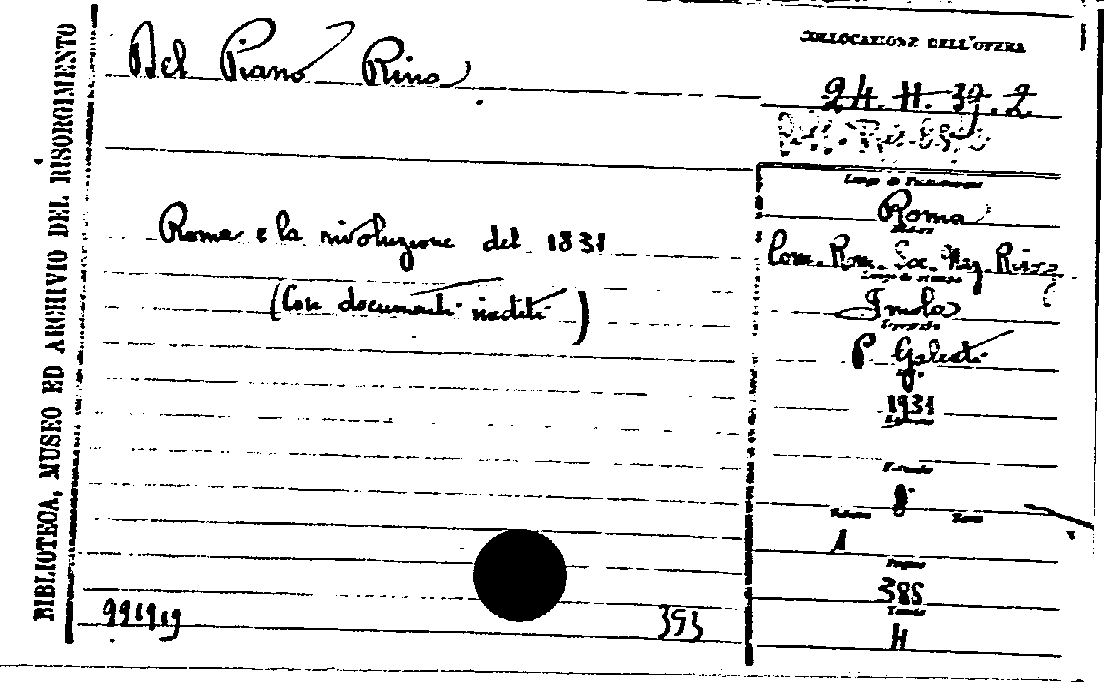 BIBLIOTECA, MUSEO ED ARCHIVIO DEL RISORGIMENTO
Del Piano Rino
Roma e la rivoluzione del 1831
(Con documenti inediti)
991919
393
COLLOCAZIONE DELL'OPERA
24. H. 39. 2
Roma
Com. Rom. Soc. Naz. Risg
Luogo di stampa
Imola
P. Galeati
1931
Formato
8.
Volume Tomo
1
Pagine
385
H